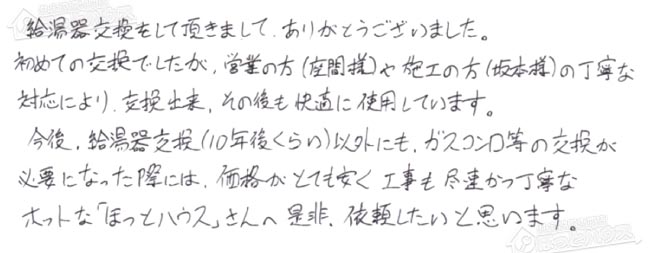 給湯器交換をして頂きまして、ありがとうございました。
初めての交換でしたが、営業の方(座間様)や施工の方(坂本様)の丁寧な
対応により、交換出来、その後も快適に使用しています。
今後、給湯器交換(10年後くらい)以外にも、ガスコンロ等の交換が
必要になった際には、価格がとても安く工事も尽速かつ丁寧な
ホットな「ほっとハウス」さんへ是非、依頼したいと思います。